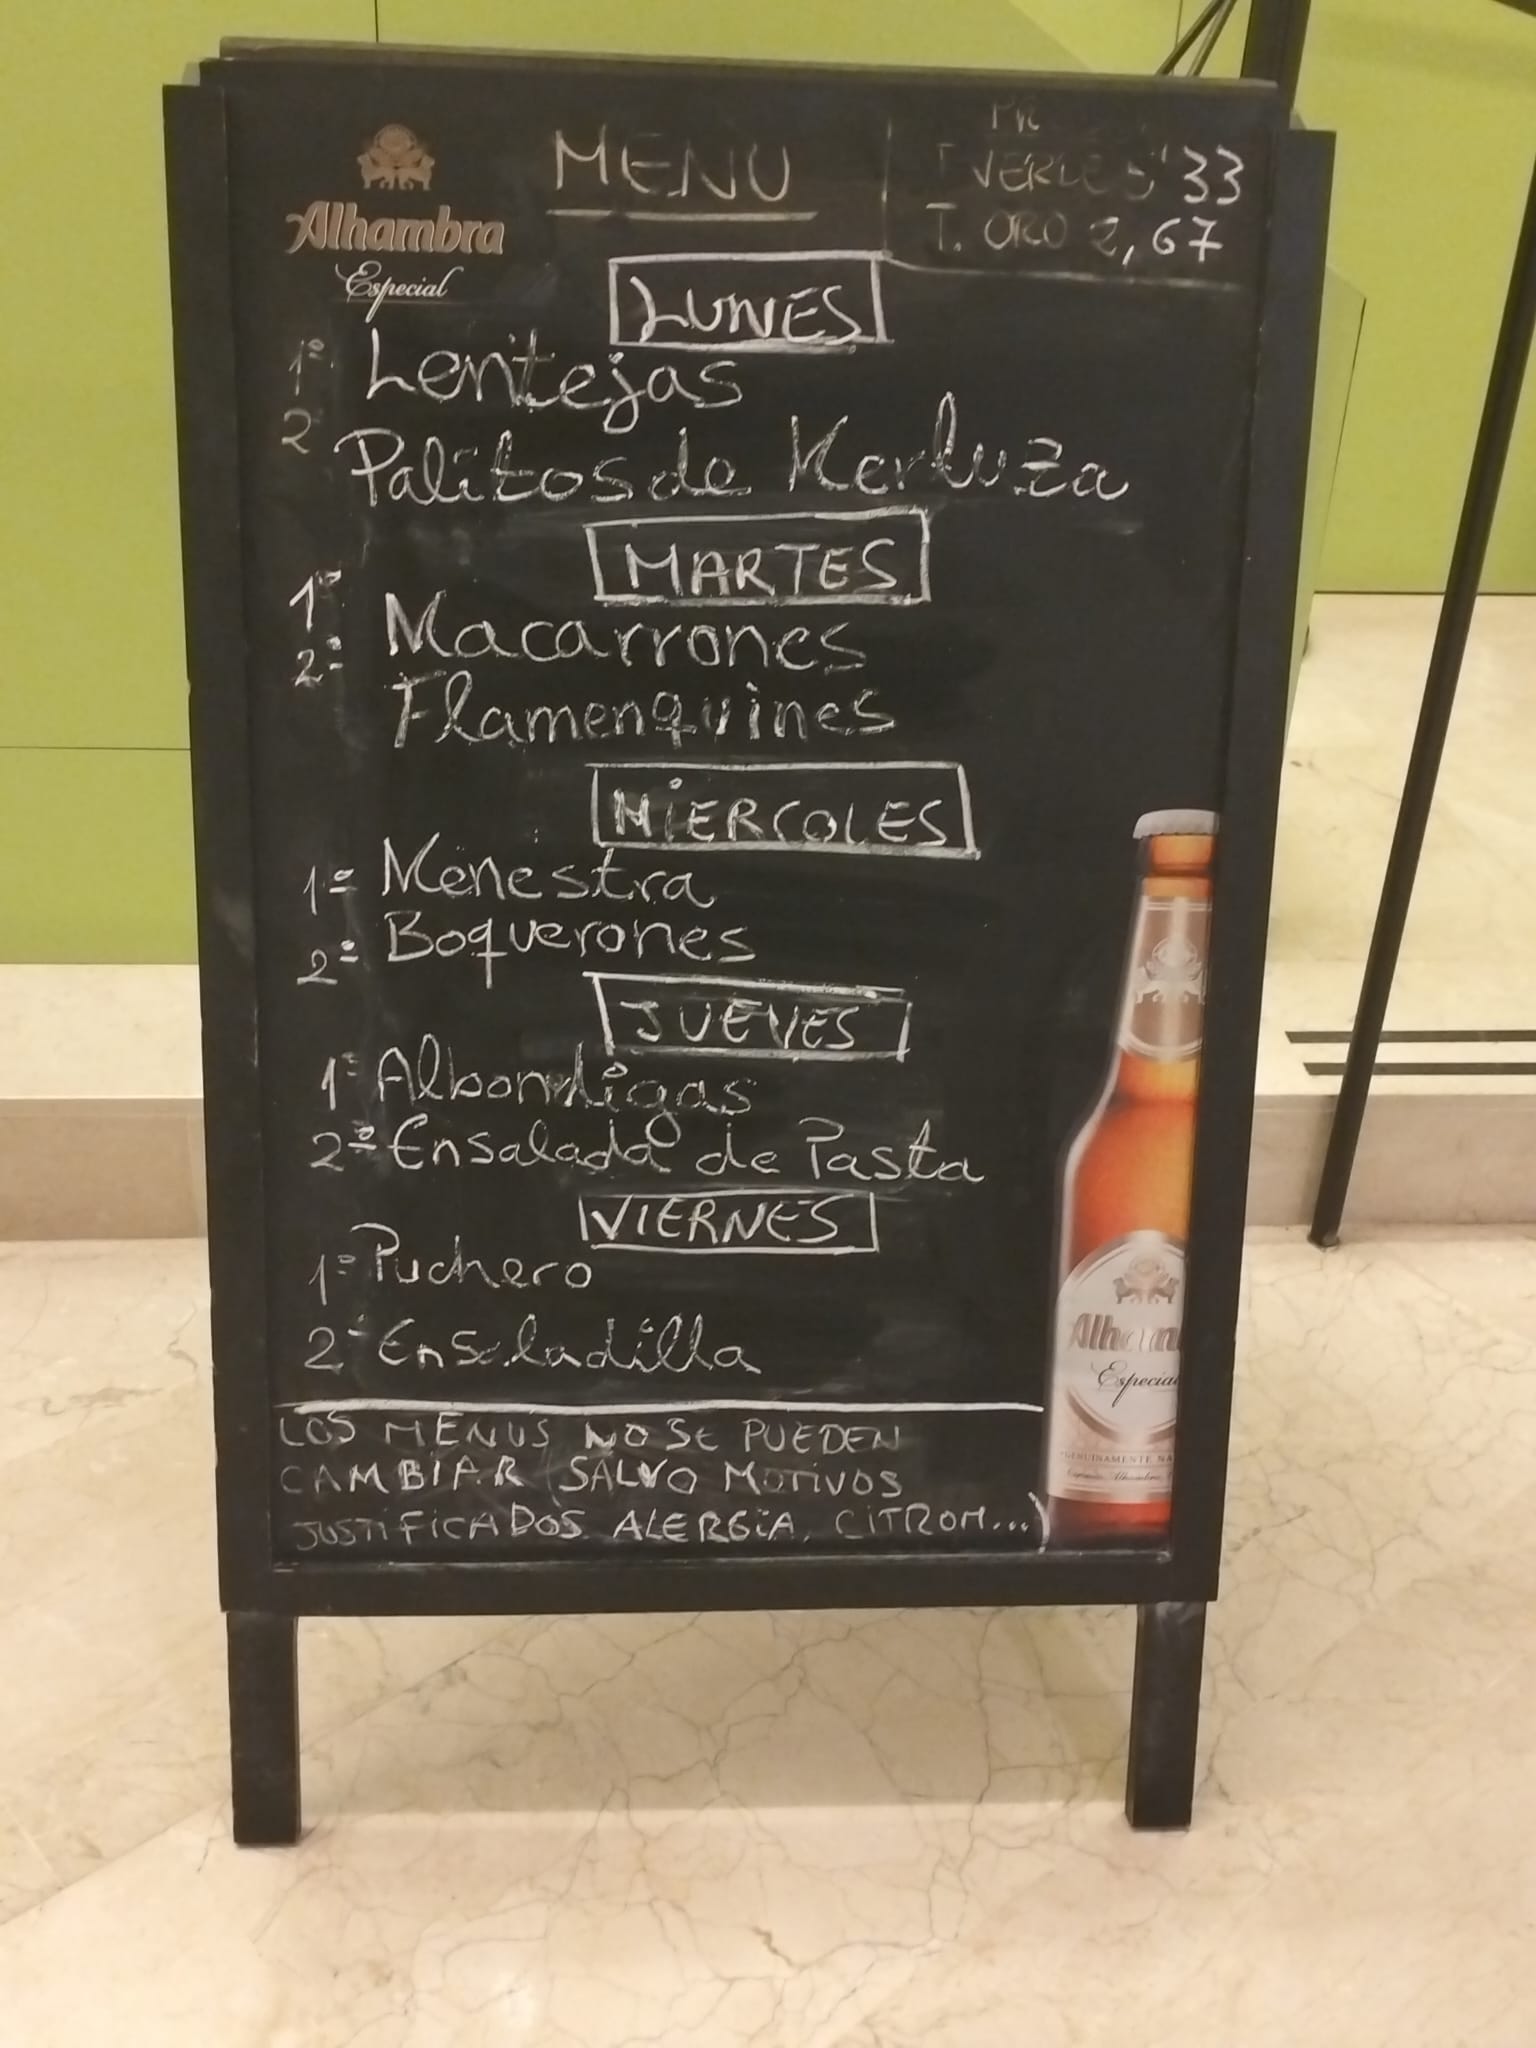 Alhambra
Especial
MENU
T. VERDE 5'33
T. ORO 2,67
LUNES
1º Lentejas
2 Palitos de Merluza
MARTES
1º Macarrones
2º Flamenquines
MiERCOLES
1º Menestra
2º Boquerones
JUEVES
1º Albondigas
2º Ensalada de Pasta
VIERNES
1º Puchero
2º Ensaladilla
LOS MENUS NO SE PUEDEN
CAMBiAR (SALVO MOTIVOS
JUSTiFiCADOS ALERGiA, CiTROM...)
Especial
GENUINAMENTE NA